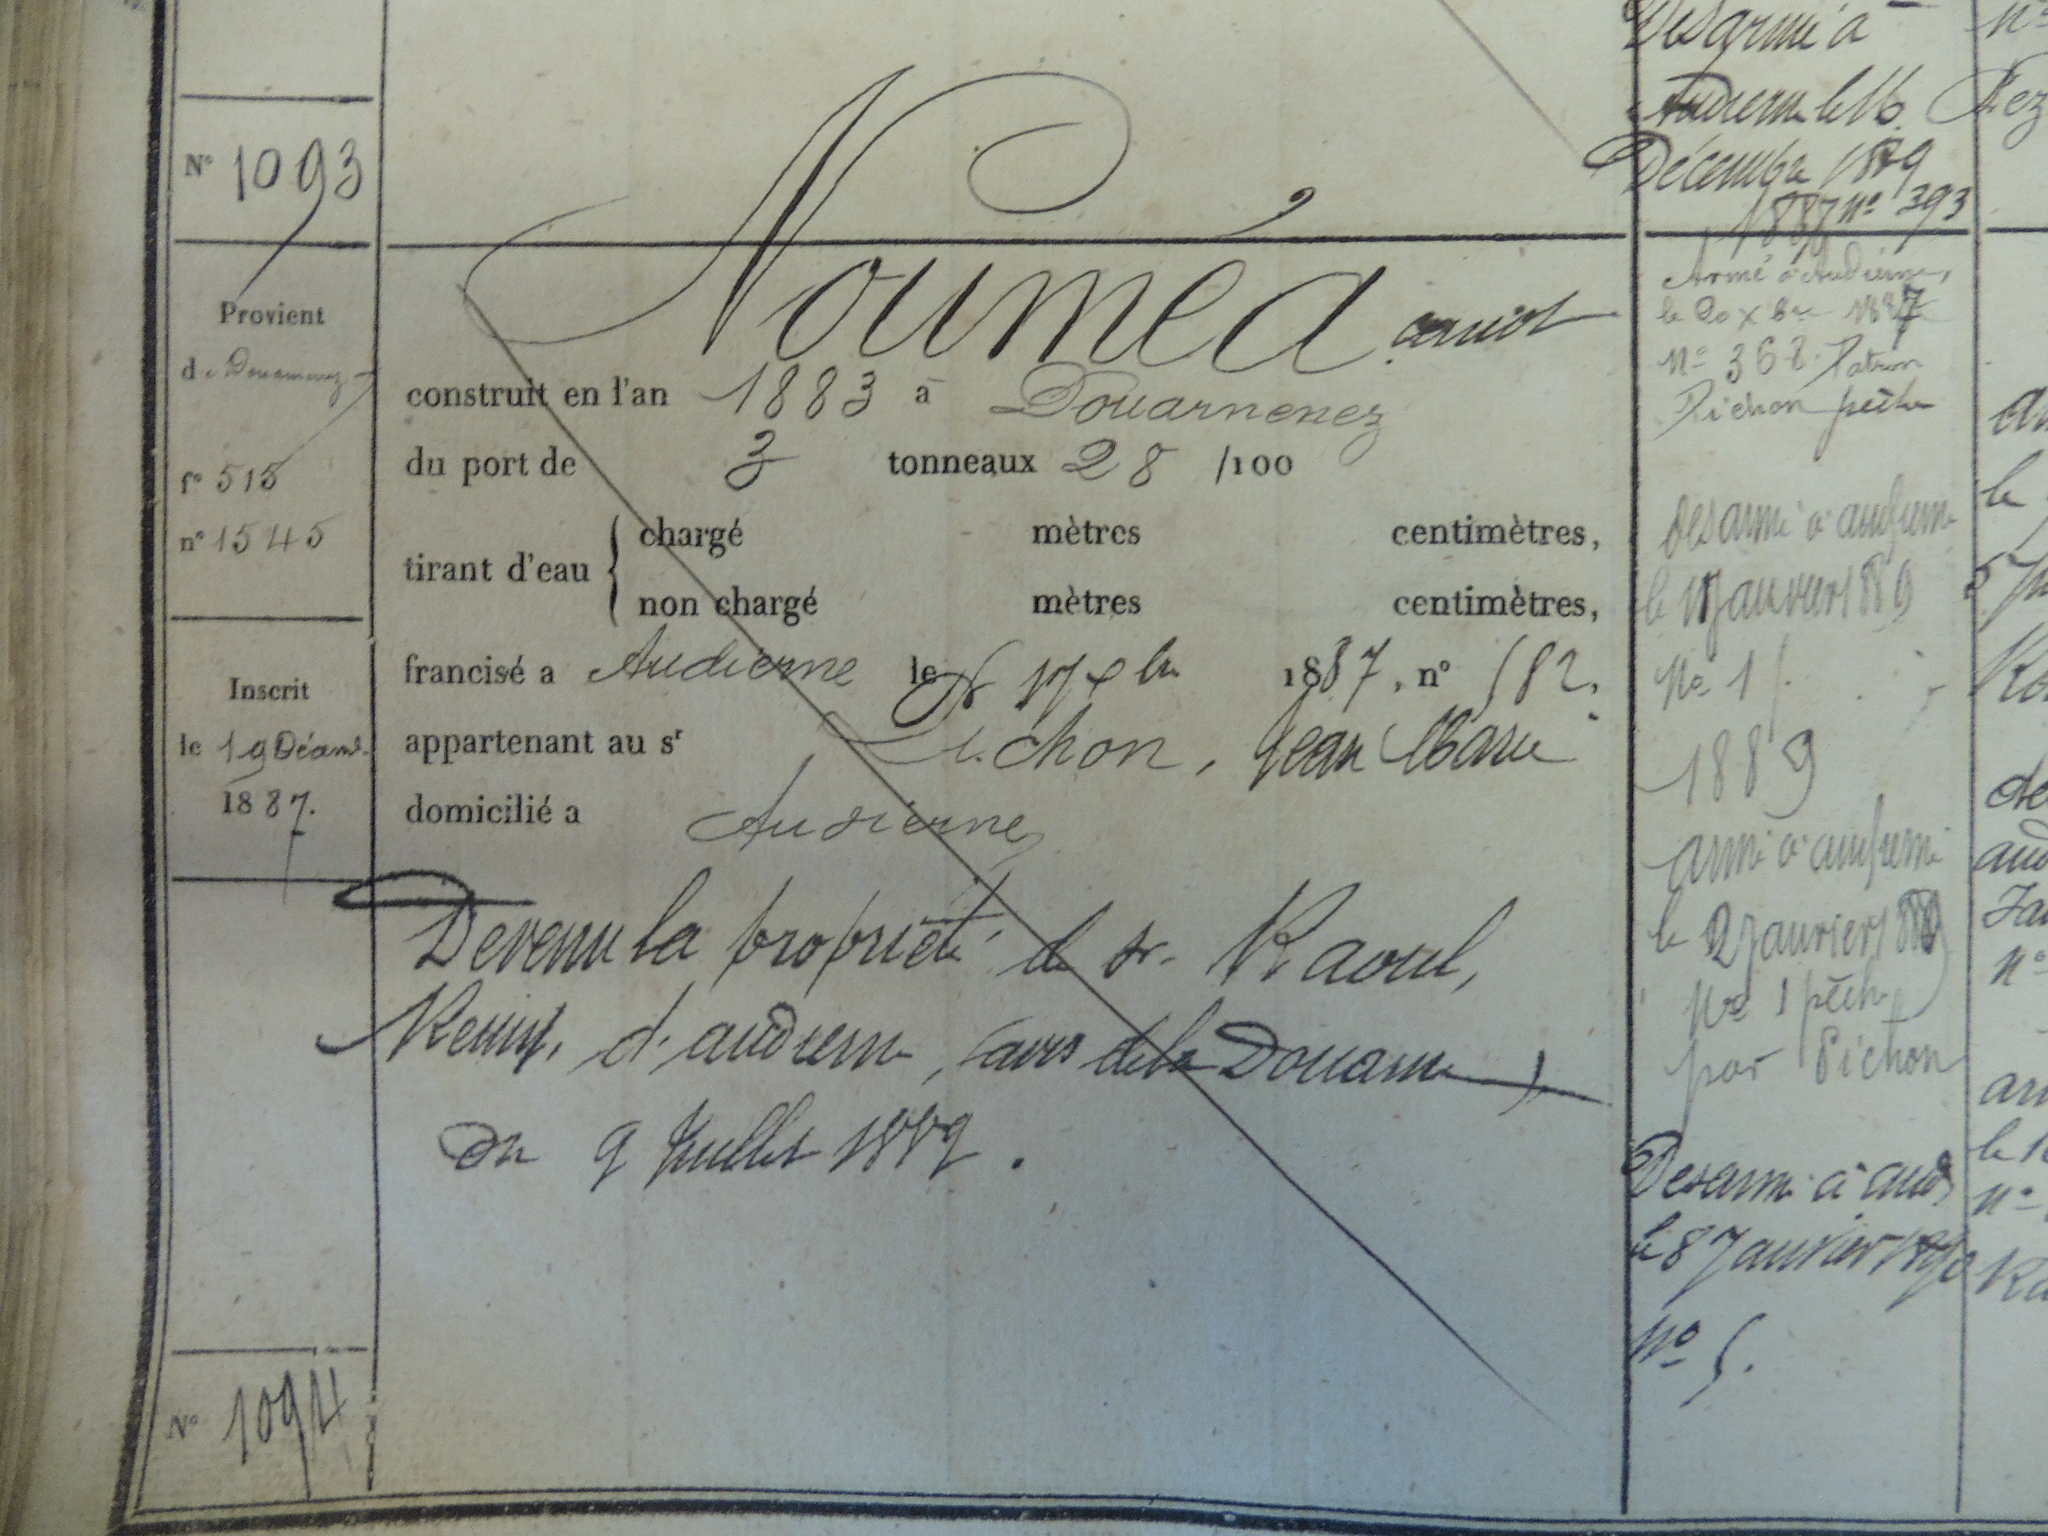 N° 1093
Provient
de Douarnenez
f° 515
n° 1545
Inscrit
le 19 Décemb.
1887.
N° 1094
Nouméa canot
construit en l'an 1883 à Douarnenez
du port de 3 tonneaux 28 /100
tirant d'eau { chargé mètres centimètres,
non chargé mètres centimètres,
francisé a Audierne le 17 xbre 1887, n° 582.
appartenant au sr Pichon, Jean Marie
domicilié a Audierne
Devenu la propriété du sr. Raoul,
d'audierne, (avis de la Douane)
du 9 Juillet 1889.
Désarmé à
Audierne le 16
Décembre 1889
1887 n° 393
Armé à Audierne,
le 20 xbre 1887
N° 368. Patron
Pichon pêche
Désarmé à audierne
le Janvier 1889
N° 1
1889
armé à audierne
le 2 Janvier 1889
N° 1 pêche
par Pichon
Désarmé à aud
le 8 Janvier 1890
N° 5.